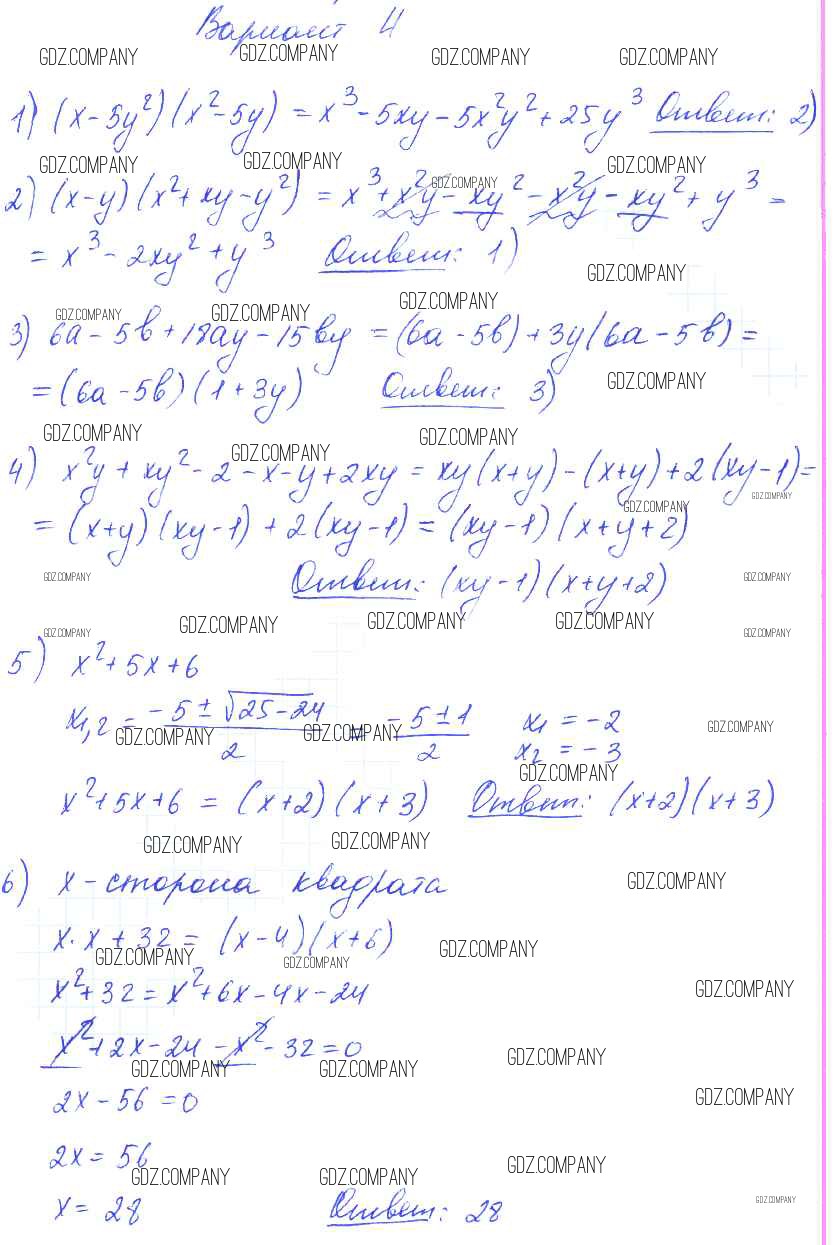 Вариант 4
GDZ.COMPANY GDZ.COMPANY GDZ.COMPANY GDZ.COMPANY
1) (x-5y²)(x²-5y) = x³-5xy-5x²y²+25y³ Ответ: 2)
GDZ.COMPANY GDZ.COMPANY GDZ.COMPANY GDZ.COMPANY
2) (x-y)(x²+xy-y²) = x³+x²y-xy²-x²y-xy²+y³=
= x³-2xy²+y³ Ответ: 1)
GDZ.COMPANY
GDZ.COMPANY GDZ.COMPANY GDZ.COMPANY
3) 6a-5b+18ay-15by =(6a-5b)+3y(6a-5b)=
=(6a-5b)(1+3y) Ответ: 3)
GDZ.COMPANY
GDZ.COMPANY GDZ.COMPANY GDZ.COMPANY
4) x²y+xy²-2-x-y+2xy = xy(x+y)-(x+y)+2(xy-1)=
GDZ.COMPANY
GDZ.COMPANY
= (x+y)(xy-1)+2(xy-1)=(xy-1)(x+y+2)
GDZ.COMPANY GDZ.COMPANY
Ответ: (xy-1)(x+y+2)
GDZ.COMPANY GDZ.COMPANY GDZ.COMPANY GDZ.COMPANY GDZ.COMPANY
5) x²+5x+6
x1,2 = -5±√25-24 / 2 = -5±1 / 2 x1 = -2
x2 = -3
GDZ.COMPANY GDZ.COMPANY GDZ.COMPANY
GDZ.COMPANY
x²+5x+6 = (x+2)(x+3) Ответ: (x+2)(x+3)
GDZ.COMPANY GDZ.COMPANY
6) x-сторона квадрата
GDZ.COMPANY
x·x+32=(x-4)(x+6)
GDZ.COMPANY GDZ.COMPANY GDZ.COMPANY
x²+32=x²+6x-4x-24
GDZ.COMPANY
x²+2x-24-x²-32=0
GDZ.COMPANY GDZ.COMPANY GDZ.COMPANY
2x-56=0
GDZ.COMPANY
2x=56
GDZ.COMPANY GDZ.COMPANY GDZ.COMPANY
x=28 Ответ: 28
GDZ.COMPANY